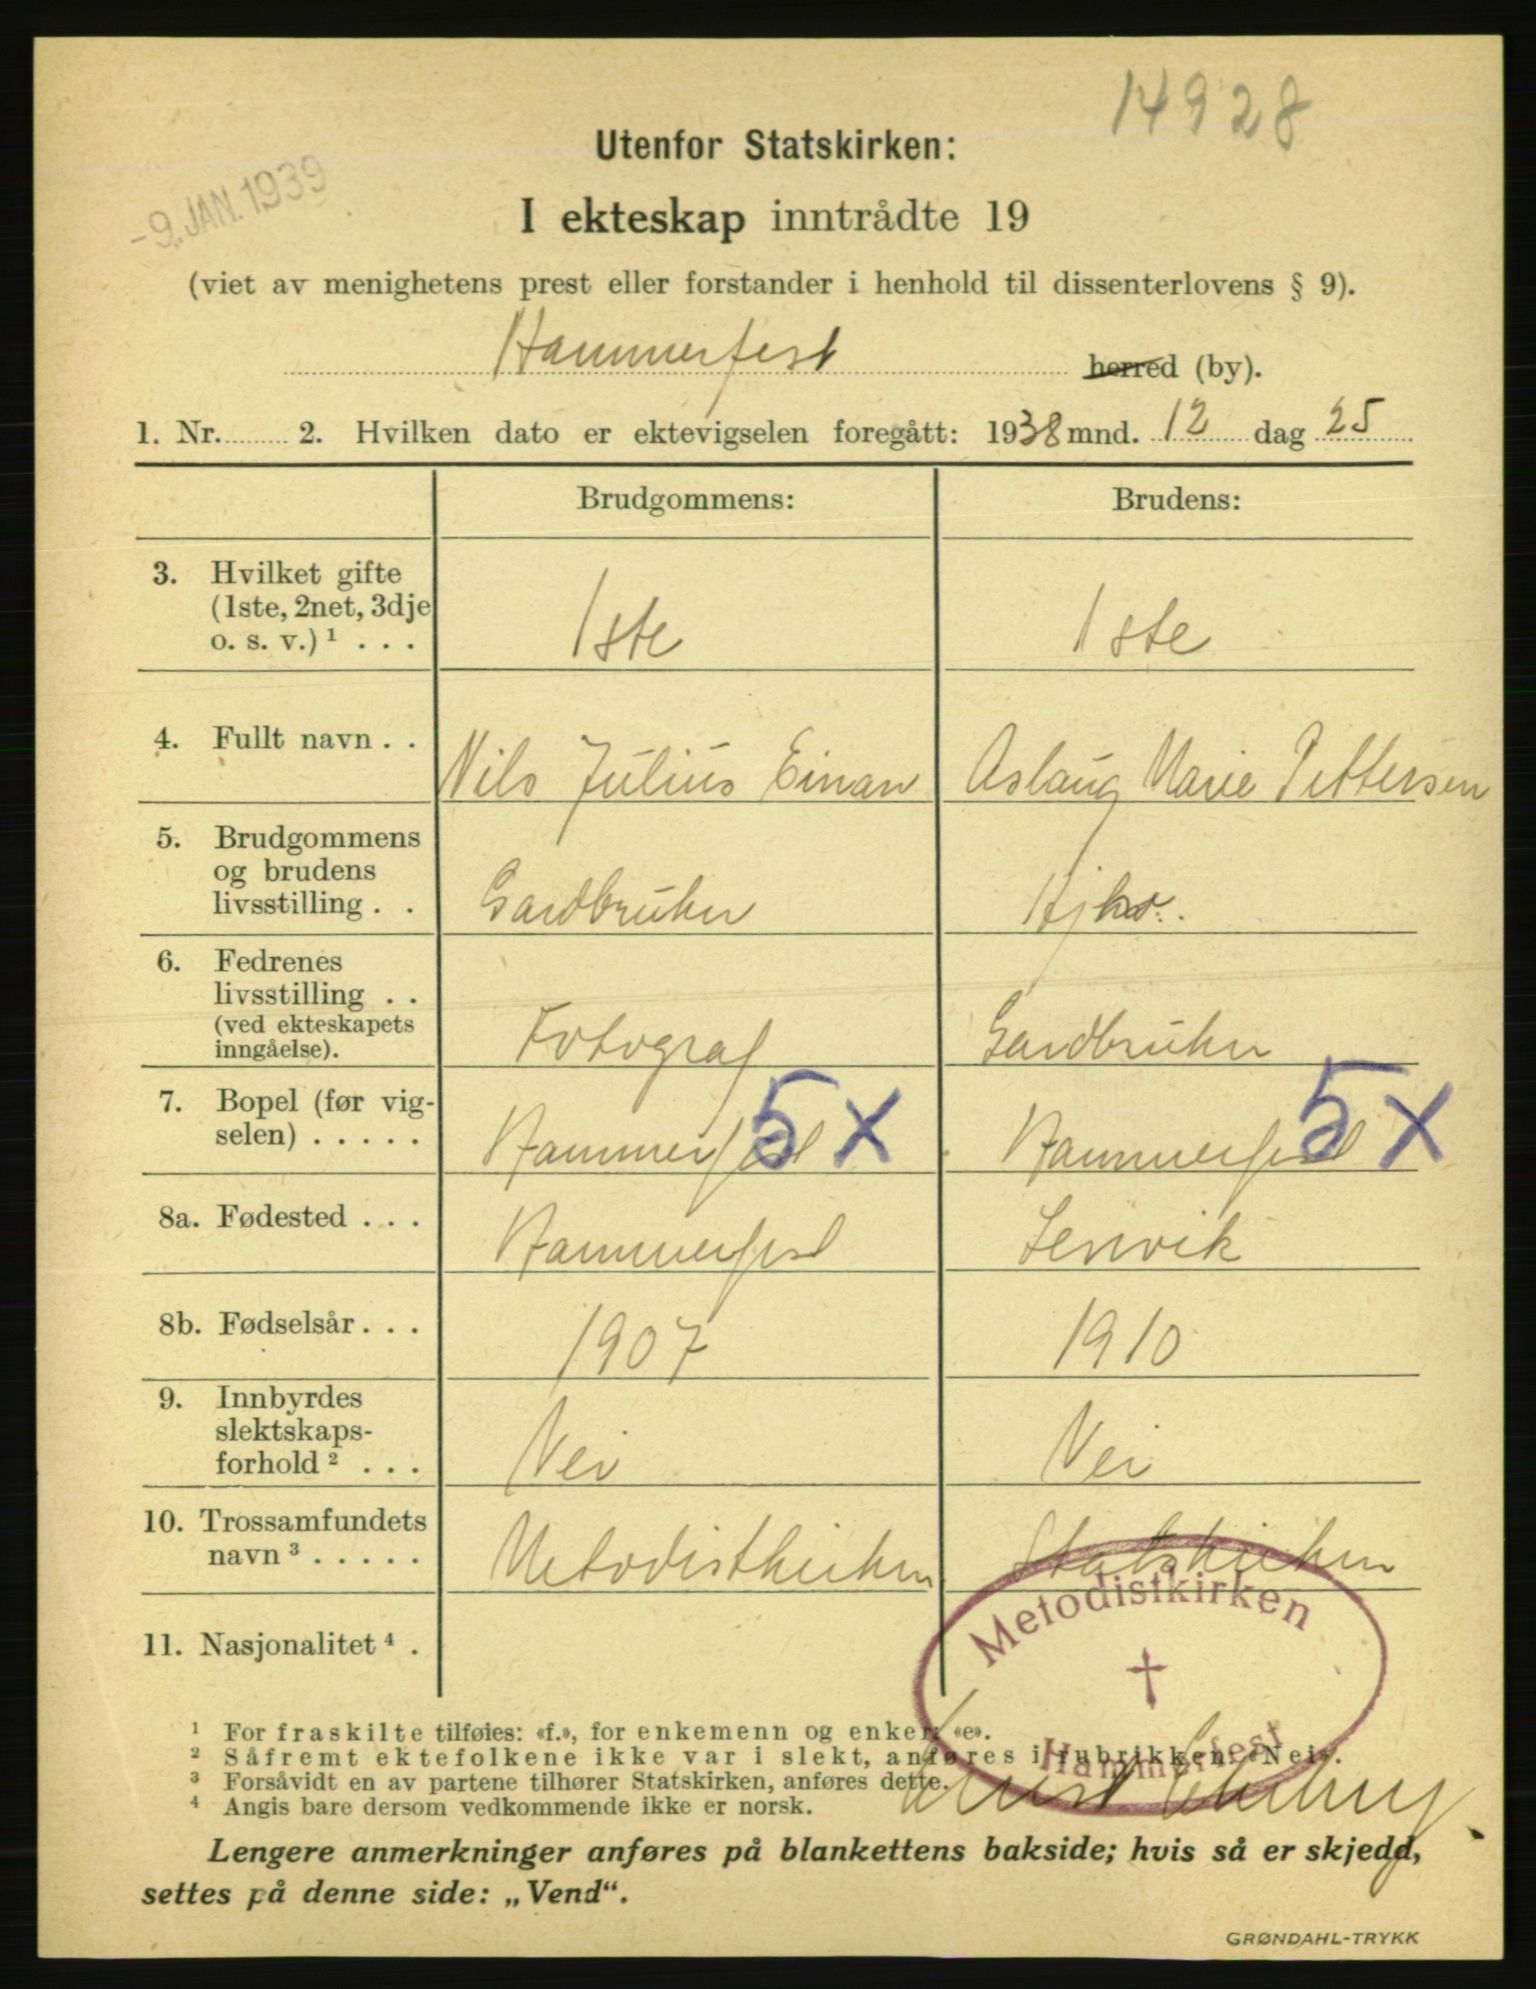 14928
-9. JAN. 1939
Utenfor Statskirken:
I ekteskap inntrådte 19
(viet av menighetens prest eller forstander i henhold til dissenterlovens § 9).
Hammerfest herred (by).
1. Nr. 2. Hvilken dato er ektevigselen foregått: 1938 mnd. 12 dag 25
Brudgommens: Brudens:
3. Hvilket gifte
(1ste, 2net, 3dje
o. s. v.) ¹ . . . 1ste 1ste
4. Fullt navn . . Nils Julius Einar Aslaug Marie Pettersen
5. Brudgommens
og brudens
livsstilling . . Gardbruker
6. Fedrenes
livsstilling . .
(ved ekteskapets
inngåelse). Fotograf Gardbruker
7. Bopel (før vig-
selen) . . . . . Hammerfest 5 X Hammerfest 5 X
8a. Fødested . . . Hammerfest Lenvik
8b. Fødselsår . . . 1907 1910
9. Innbyrdes
slektskaps-
forhold ² . . . Nei Nei
10. Trossamfundets
navn ³ . . . . . Metodistkirken Statskirken
11. Nasjonalitet ⁴ .
Metodistkirken
Hammerfest
¹ For fraskilte tilføies: «f.», for enkemenn og enker: «e».
² Såfremt ektefolkene ikke var i slekt, anføres i rubrikken: «Nei».
³ Forsåvidt en av partene tilhører Statskirken, anføres dette.
⁴ Angis bare dersom vedkommende ikke er norsk.
Lengere anmerkninger anføres på blankettens bakside; hvis så er skjedd,
settes på denne side: „Vend“.
GRØNDAHL-TRYKK